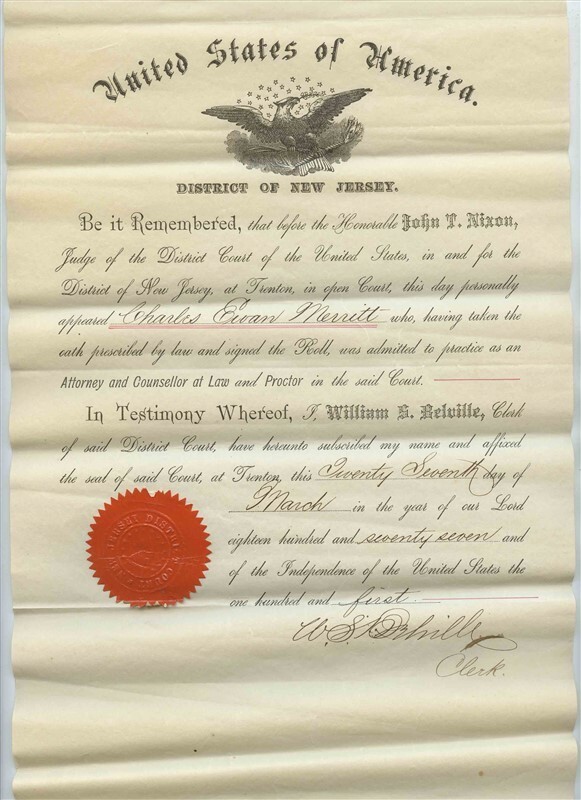 United States of America.
DISTRICT OF NEW JERSEY.
Be it Remembered, that before the Honorable John T. Nixon,
Judge of the District Court of the United States, in and for the
District of New Jersey, at Trenton, in open Court, this day personally
appeared Charles Ewan Merritt who, having taken the
oath prescribed by law and signed the Roll, was admitted to practice as an
Attorney and Counsellor at Law and Proctor in the said Court.
In Testimony Whereof, I, William S. Belville, Clerk
of said District Court, have hereunto subscribed my name and affixed
the seal of said Court, at Trenton, this Twenty Seventh day of
March in the year of our Lord
eighteen hundred and seventy seven and
of the Independence of the United States the
one hundred and first.
W. S. Belville
Clerk.